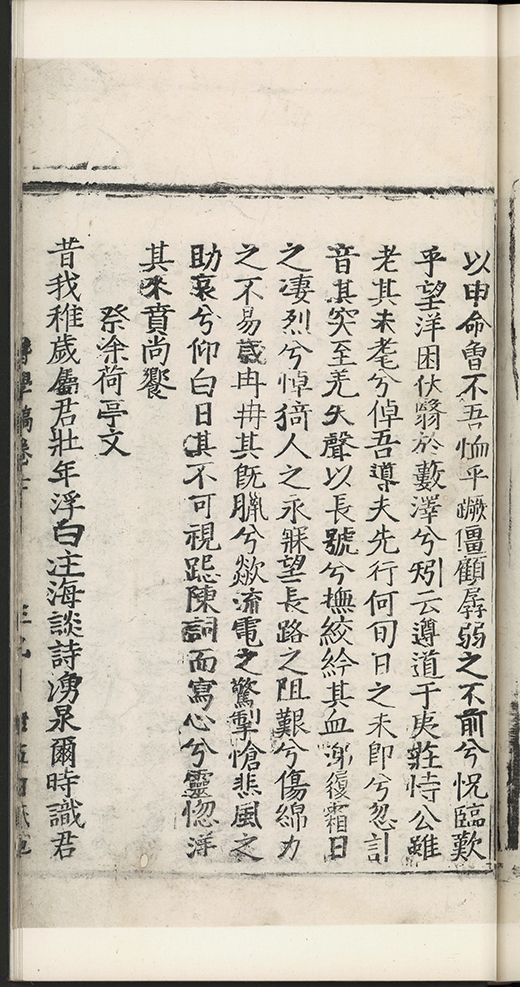 以申命曾不吾恤乎蹶僵顧孱弱之不前兮怳臨歎
乎望洋困伏翳於藪澤兮矧云遵道于庚莊恃公雖
老其未耄兮倬吾導夫先行何旬日之未即兮忽訃
音其突至羌失聲以長號兮撫絞紟其血涕復霜日
之凄烈兮悼猗人之永寐望長路之阻艱兮傷綿力
之不易歲冉冉其旣臘兮歘流電之驚掣愴悲風之
助哀兮仰白日其不可視跽陳詞而寫心兮靈惚洋
其來賁尚饗
祭涂荷亭文
昔我稚歲屬君壯年浮白注海談詩湧泉爾時識君
學稿卷十